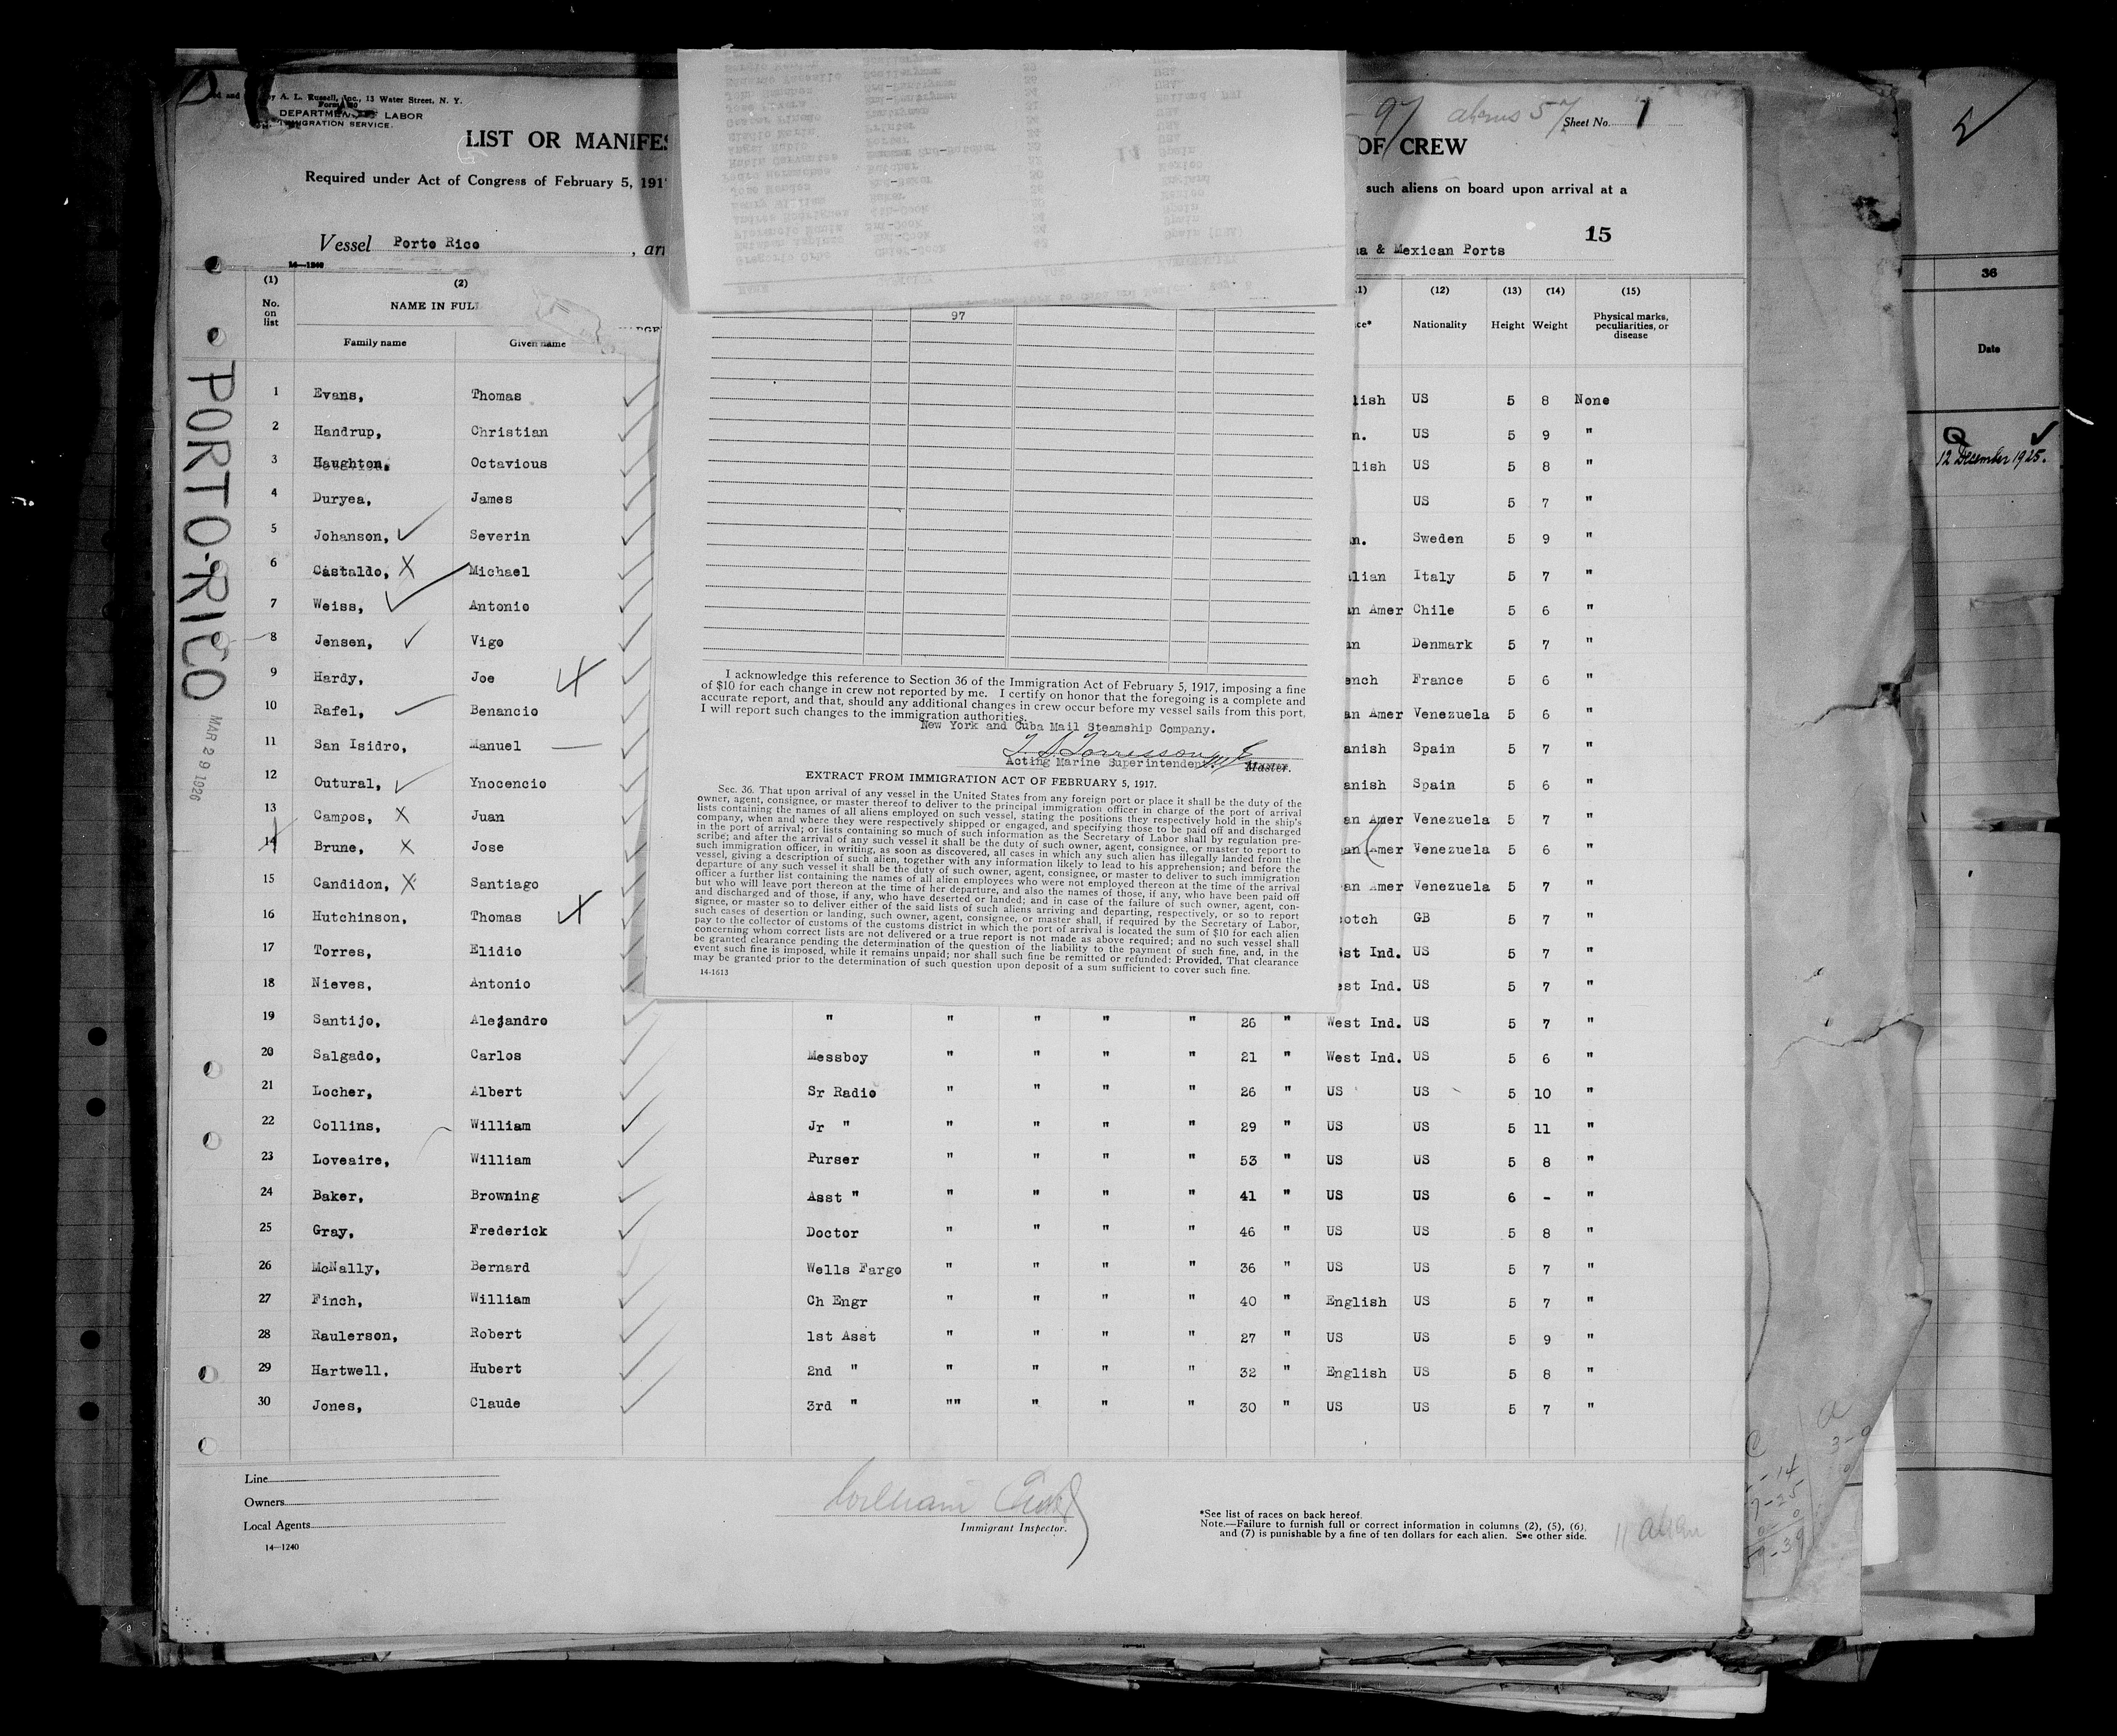 by A. L. Russell, Inc., 13 Water Street, N. Y.
DEPARTMENT LABOR
IMMIGRATION SERVICE.
LIST OR MANIFES
OF CREW
97 aliens 57
Sheet No. 1
Required under Act of Congress of February 5, 191
such aliens on board upon arrival at a
15
Vessel Porto Rico, arr
& Mexican Ports
14—1240
(1) (2) (12) (13) (14) (15)
No. on list
NAME IN FULL
Family name Given name
Nationality Height Weight Physical marks, peculiarities, or disease
36
Date
Q
12 December 1925.
PORTO-RICO
MAR 29 1926
97
1 Evans, Thomas lish US 5 8 None
2 Handrup, Christian n. US 5 9 "
3 Haughton, Octavious lish US 5 8 "
4 Duryea, James US 5 7 "
5 Johanson, Severin n. Sweden 5 9 "
6 Castaldo, X Michael lian Italy 5 7 "
7 Weiss, Antonio an Amer Chile 5 6 "
8 Jensen, Vigo an Denmark 5 7 "
9 Hardy, Joe ench France 5 6 "
10 Rafel, Benancio an Amer Venezuela 5 6 "
11 San Isidro, Manuel anish Spain 5 7 "
12 Outural, Ynocencio anish Spain 5 6 "
13 Campos, X Juan an Amer Venezuela 5 7 "
14 Brune, X Jose an Amer Venezuela 5 6 "
15 Candidon, X Santiago an Amer Venezuela 5 7 "
16 Hutchinson, Thomas otch GB 5 7 "
17 Torres, Elidio st Ind. US 5 7 "
18 Nieves, Antonio est Ind. US 5 7 "
19 Santijo, Alejandro " " " " " 26 " West Ind. US 5 7 "
20 Salgado, Carlos Messboy " " " " 21 " West Ind. US 5 6 "
21 Locher, Albert Sr Radio " " " " 26 " US US 5 10 "
22 Collins, William Jr " " " " " 29 " US US 5 11 "
23 Loveaire, William Purser " " " " 53 " US US 5 8 "
24 Baker, Browning Asst " " " " " 41 " US US 6 - "
25 Gray, Frederick Doctor " " " " 46 " US US 5 8 "
26 McNally, Bernard Wells Fargo " " " " 36 " US US 5 7 "
27 Finch, William Ch Engr " " " " 40 " English US 5 7 "
28 Raulerson, Robert 1st Asst " " " " 27 " US US 5 9 "
29 Hartwell, Hubert 2nd " " " " " 32 " English US 5 8 "
30 Jones, Claude 3rd " "" " " " 30 " US US 5 7 "
I acknowledge this reference to Section 36 of the Immigration Act of February 5, 1917, imposing a fine
of $10 for each change in crew not reported by me. I certify on honor that the foregoing is a complete and
accurate report, and that, should any additional changes in crew occur before my vessel sails from this port,
I will report such changes to the immigration authorities.
New York and Cuba Mail Steamship Company.
Acting Marine Superintendent. Master.
EXTRACT FROM IMMIGRATION ACT OF FEBRUARY 5, 1917.
Sec. 36. That upon arrival of any vessel in the United States from any foreign port or place it shall be the duty of the
owner, agent, consignee, or master thereof to deliver to the principal immigration officer in charge of the port of arrival
lists containing the names of all aliens employed on such vessel, stating the positions they respectively hold in the ship's
company, when and where they were respectively shipped or engaged, and specifying those to be paid off and discharged
in the port of arrival; or lists containing so much of such information as the Secretary of Labor shall by regulation pre-
scribe; and after the arrival of any such vessel it shall be the duty of such owner, agent, consignee, or master to report to
such immigration officer, in writing, as soon as discovered, all cases in which any such alien has illegally landed from the
vessel, giving a description of such alien, together with any information likely to lead to his apprehension; and before the
departure of any such vessel it shall be the duty of such owner, agent, consignee, or master to deliver to such immigration
officer a further list containing the names of all alien employees who were not employed thereon at the time of the arrival
but who will leave port thereon at the time of her departure, and also the names of those, if any, who have been paid off
and discharged and of those, if any, who have deserted or landed; and in case of the failure of such owner, agent, con-
signee, or master so to deliver either of the said lists of such aliens arriving and departing, respectively, or so to report
such cases of desertion or landing, such owner, agent, consignee, or master shall, if required by the Secretary of Labor,
pay to the collector of customs of the customs district in which the port of arrival is located the sum of $10 for each alien
concerning whom correct lists are not delivered or a true report is not made as above required; and no such vessel shall
be granted clearance pending the determination of the question of the liability to the payment of such fine, and, in the
event such fine is imposed, while it remains unpaid; nor shall such fine be remitted or refunded: Provided, That clearance
may be granted prior to the determination of such question upon deposit of a sum sufficient to cover such fine.
14-1613
Line
Owners
Local Agents
14—1240
William
Immigrant Inspector.
*See list of races on back hereof.
Note.—Failure to furnish full or correct information in columns (2), (5), (6),
and (7) is punishable by a fine of ten dollars for each alien. See other side.
11 alien